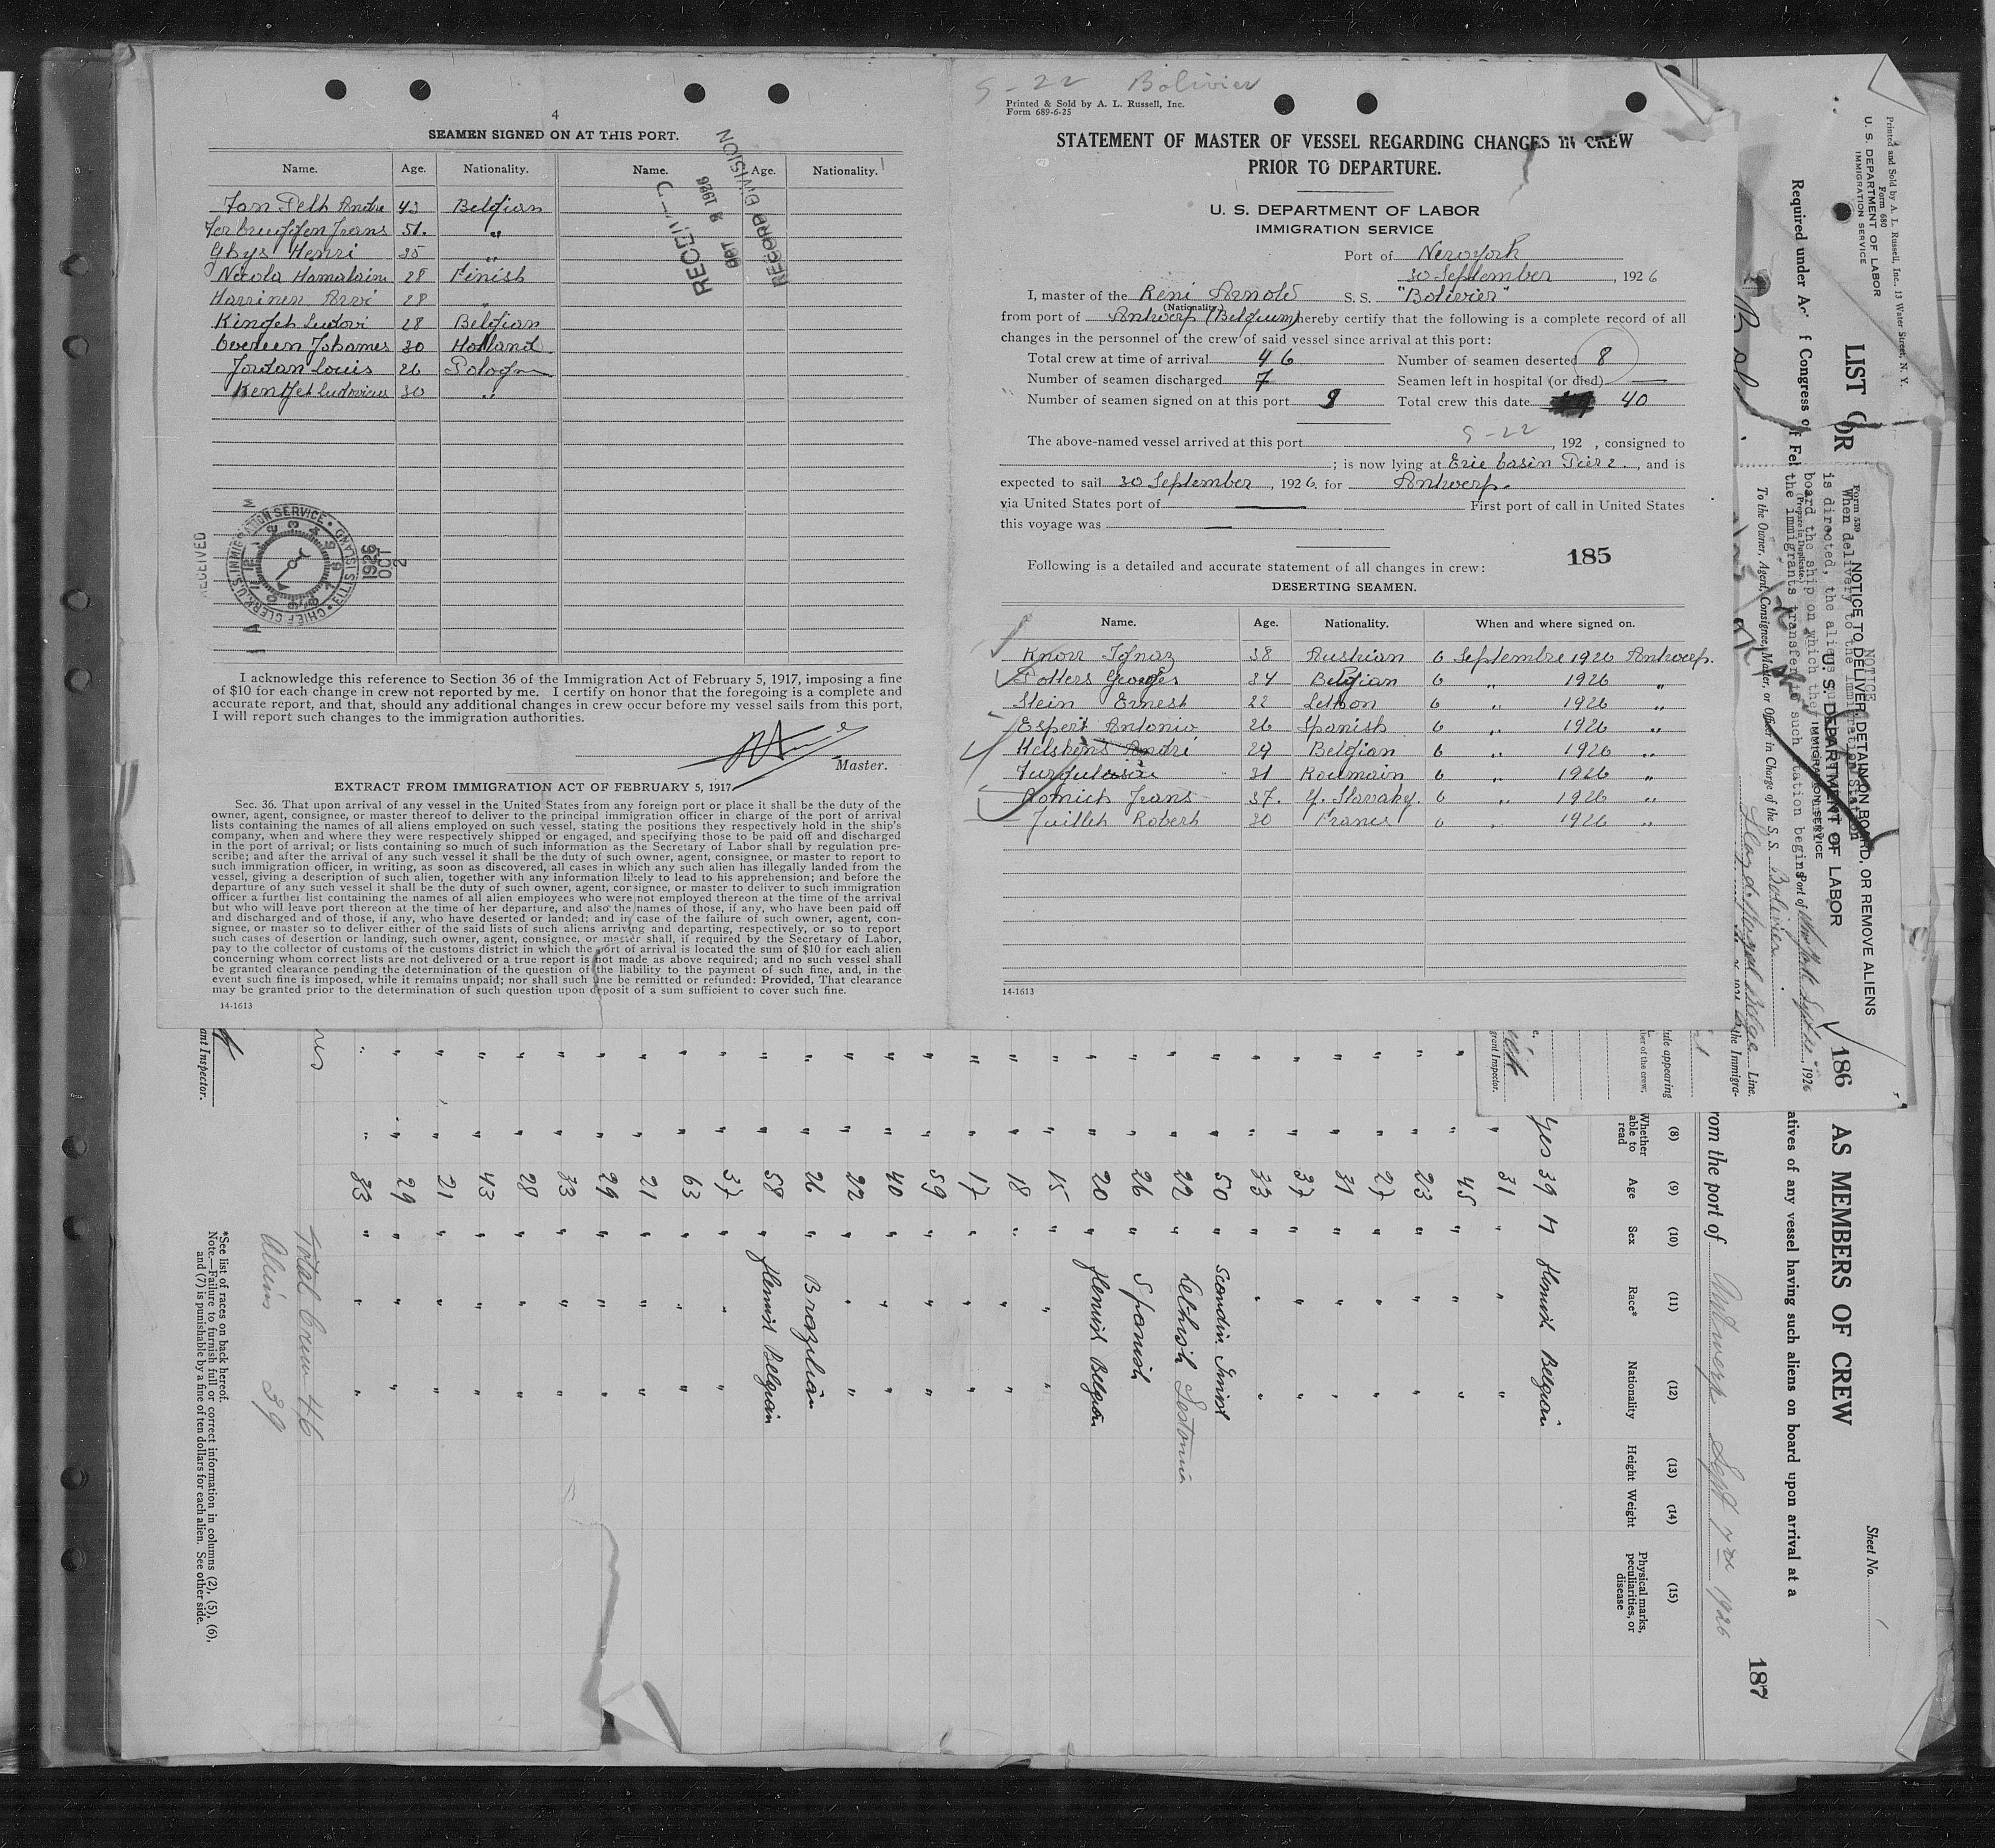 4
SEAMEN SIGNED ON AT THIS PORT.
Name. Age. Nationality. Name. Age. Nationality.
43 Belgian
51. "
Ghys Henri 35 "
28 Finish
Arvi 28 "
28 Belgian
30 Holland
Jordan Louis 26 Pologne
Ludovicus 30 "
RECEIVED
OCT 1926
RECORD DIVISION
RECEIVED
CHIEF CLERK, U.S. IMMIGRATION SERVICE • ELLIS ISLAND •
1926
OCT
2
I acknowledge this reference to Section 36 of the Immigration Act of February 5, 1917, imposing a fine
of $10 for each change in crew not reported by me. I certify on honor that the foregoing is a complete and
accurate report, and that, should any additional changes in crew occur before my vessel sails from this port,
I will report such changes to the immigration authorities.
Master.
EXTRACT FROM IMMIGRATION ACT OF FEBRUARY 5, 1917
Sec. 36. That upon arrival of any vessel in the United States from any foreign port or place it shall be the duty of the
owner, agent, consignee, or master thereof to deliver to the principal immigration officer in charge of the port of arrival
lists containing the names of all aliens employed on such vessel, stating the positions they respectively hold in the ship's
company, when and where they were respectively shipped or engaged, and specifying those to be paid off and discharged
in the port of arrival; or lists containing so much of such information as the Secretary of Labor shall by regulation pre-
scribe; and after the arrival of any such vessel it shall be the duty of such owner, agent, consignee, or master to report to
such immigration officer, in writing, as soon as discovered, all cases in which any such alien has illegally landed from the
vessel, giving a description of such alien, together with any information likely to lead to his apprehension; and before the
departure of any such vessel it shall be the duty of such owner, agent, consignee, or master to deliver to such immigration
officer a further list containing the names of all alien employees who were not employed thereon at the time of the arrival
but who will leave port thereon at the time of her departure, and also the names of those, if any, who have been paid off
and discharged and of those, if any, who have deserted or landed; and in case of the failure of such owner, agent, con-
signee, or master so to deliver either of the said lists of such aliens arriving and departing, respectively, or so to report
such cases of desertion or landing, such owner, agent, consignee, or master shall, if required by the Secretary of Labor,
pay to the collector of customs of the customs district in which the port of arrival is located the sum of $10 for each alien
concerning whom correct lists are not delivered or a true report is not made as above required; and no such vessel shall
be granted clearance pending the determination of the question of the liability to the payment of such fine, and, in the
event such fine is imposed, while it remains unpaid; nor shall such fine be remitted or refunded: Provided, That clearance
may be granted prior to the determination of such question upon deposit of a sum sufficient to cover such fine.
14-1613
S-22 Bolivier
Printed & Sold by A. L. Russell, Inc.
Form 689-6-25
STATEMENT OF MASTER OF VESSEL REGARDING CHANGES IN CREW
PRIOR TO DEPARTURE.
U. S. DEPARTMENT OF LABOR
IMMIGRATION SERVICE
Port of New York
30 September, 1926
I, master of the René Arnold S. S. "Bolivier"
(Nationality)
from port of Antwerp (Belgium) hereby certify that the following is a complete record of all
changes in the personnel of the crew of said vessel since arrival at this port:
Total crew at time of arrival 46 Number of seamen deserted 8
Number of seamen discharged 7 Seamen left in hospital (or died) —
Number of seamen signed on at this port 9 Total crew this date 40
The above-named vessel arrived at this port S-22, 192 , consigned to
; is now lying at Erie basin Pier 2, and is
expected to sail 30 September, 1926, for Antwerp.
via United States port of — First port of call in United States
this voyage was —
185
Following is a detailed and accurate statement of all changes in crew:
DESERTING SEAMEN.
Name. Age. Nationality. When and where signed on.
Knorr Ignaz 38 Austrian 6 Septembre 1926 Antwerp.
Potters Georges 34 Belgian 6 " 1926 "
Stein Ernest 22 6 " 1926 "
Espert Antonio 26 Spanish 6 " 1926 "
Helskens André 29 Belgian 6 " 1926 "
31 Roumain 6 " 1926 "
Romich Frans 37. 6 " 1926 "
Juillet Robert 30 Francs 6 " 1926 "
14-1613
Printed and Sold by A. L. Russell, Inc., 13 Water Street, N. Y.
Form 680
U. S. DEPARTMENT OF LABOR
IMMIGRATION SERVICE
LIST OR
Required under Act of Congress of Feb
186
AS MEMBERS OF CREW
Sheet No.
atives of any vessel having such aliens on board upon arrival at a
rom the port of Antwerp Sept 7th 1926
187
Form 539
NOTICE TO DELIVER, DETAIN ON BOARD, OR REMOVE ALIENS
U. S. DEPARTMENT OF LABOR
IMMIGRATION SERVICE
(Prepare in Duplicate.)
NOTICE
When delivery to the Immigration Station
is directed, the aliens
board the ship on which
the immigrants transfer to such station begins
Port of New York, 1926
To the Owner, Agent, Consignee, Master, or Officer in Charge of the S. S. Bolivier
Lloyd Royal Belge Line.
the Immigra-
grant Inspector.
ule appearing
ber of the crew.
(8) (9) (10) (11) (12) (13) (14) (15)
Whether able to read Age Sex Race* Nationality Height Weight Physical marks, peculiarities, or disease
Yes 39 M Flemish Belgian
" 31 " " "
" 45 " " "
" 23 " " "
" 27 " " "
" 31 " " "
" 37 " " "
" 33 " " "
" 50 " Scandin. Finish
" 22 " Lethish Lestonia
" 26 " Spanish
" 20 " Flemish Belgian
" 15 " " "
" 18 " " "
" 17 " " "
" 59 " " "
" 40 " " "
" 22 " " "
" 26 " Brazilian
" 58 " Flemish Belgian
" 37 " " "
" 63 " " "
" 21 " " "
" 29 " " "
" 33 " " "
" 28 " " "
" 43 " " "
" 21 " " "
" 29 " " "
" 33 " " "
Total Crew 46
Aliens 39
*See list of races on back hereof.
Note.—Failure to furnish full or correct information in columns (2), (5), (6),
and (7) is punishable by a fine of ten dollars for each alien. See other side.
ant Inspector.